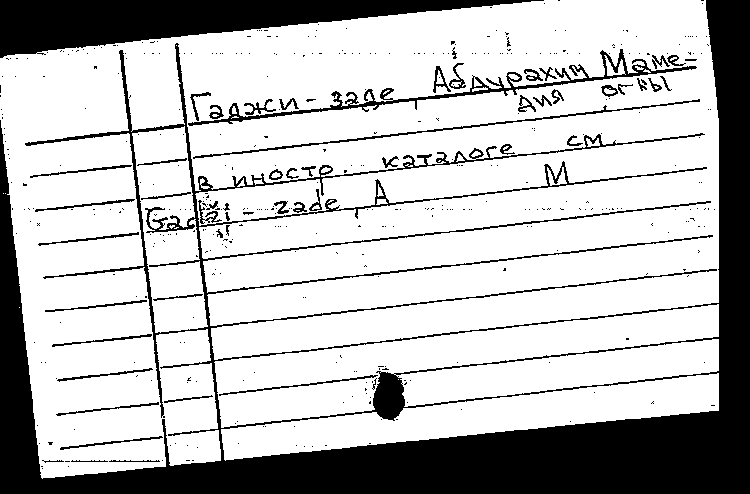 Гаджи-заде, Абдурахим Маме=
дия оглы
в иностр. каталоге см.
Gadži-zade, A M